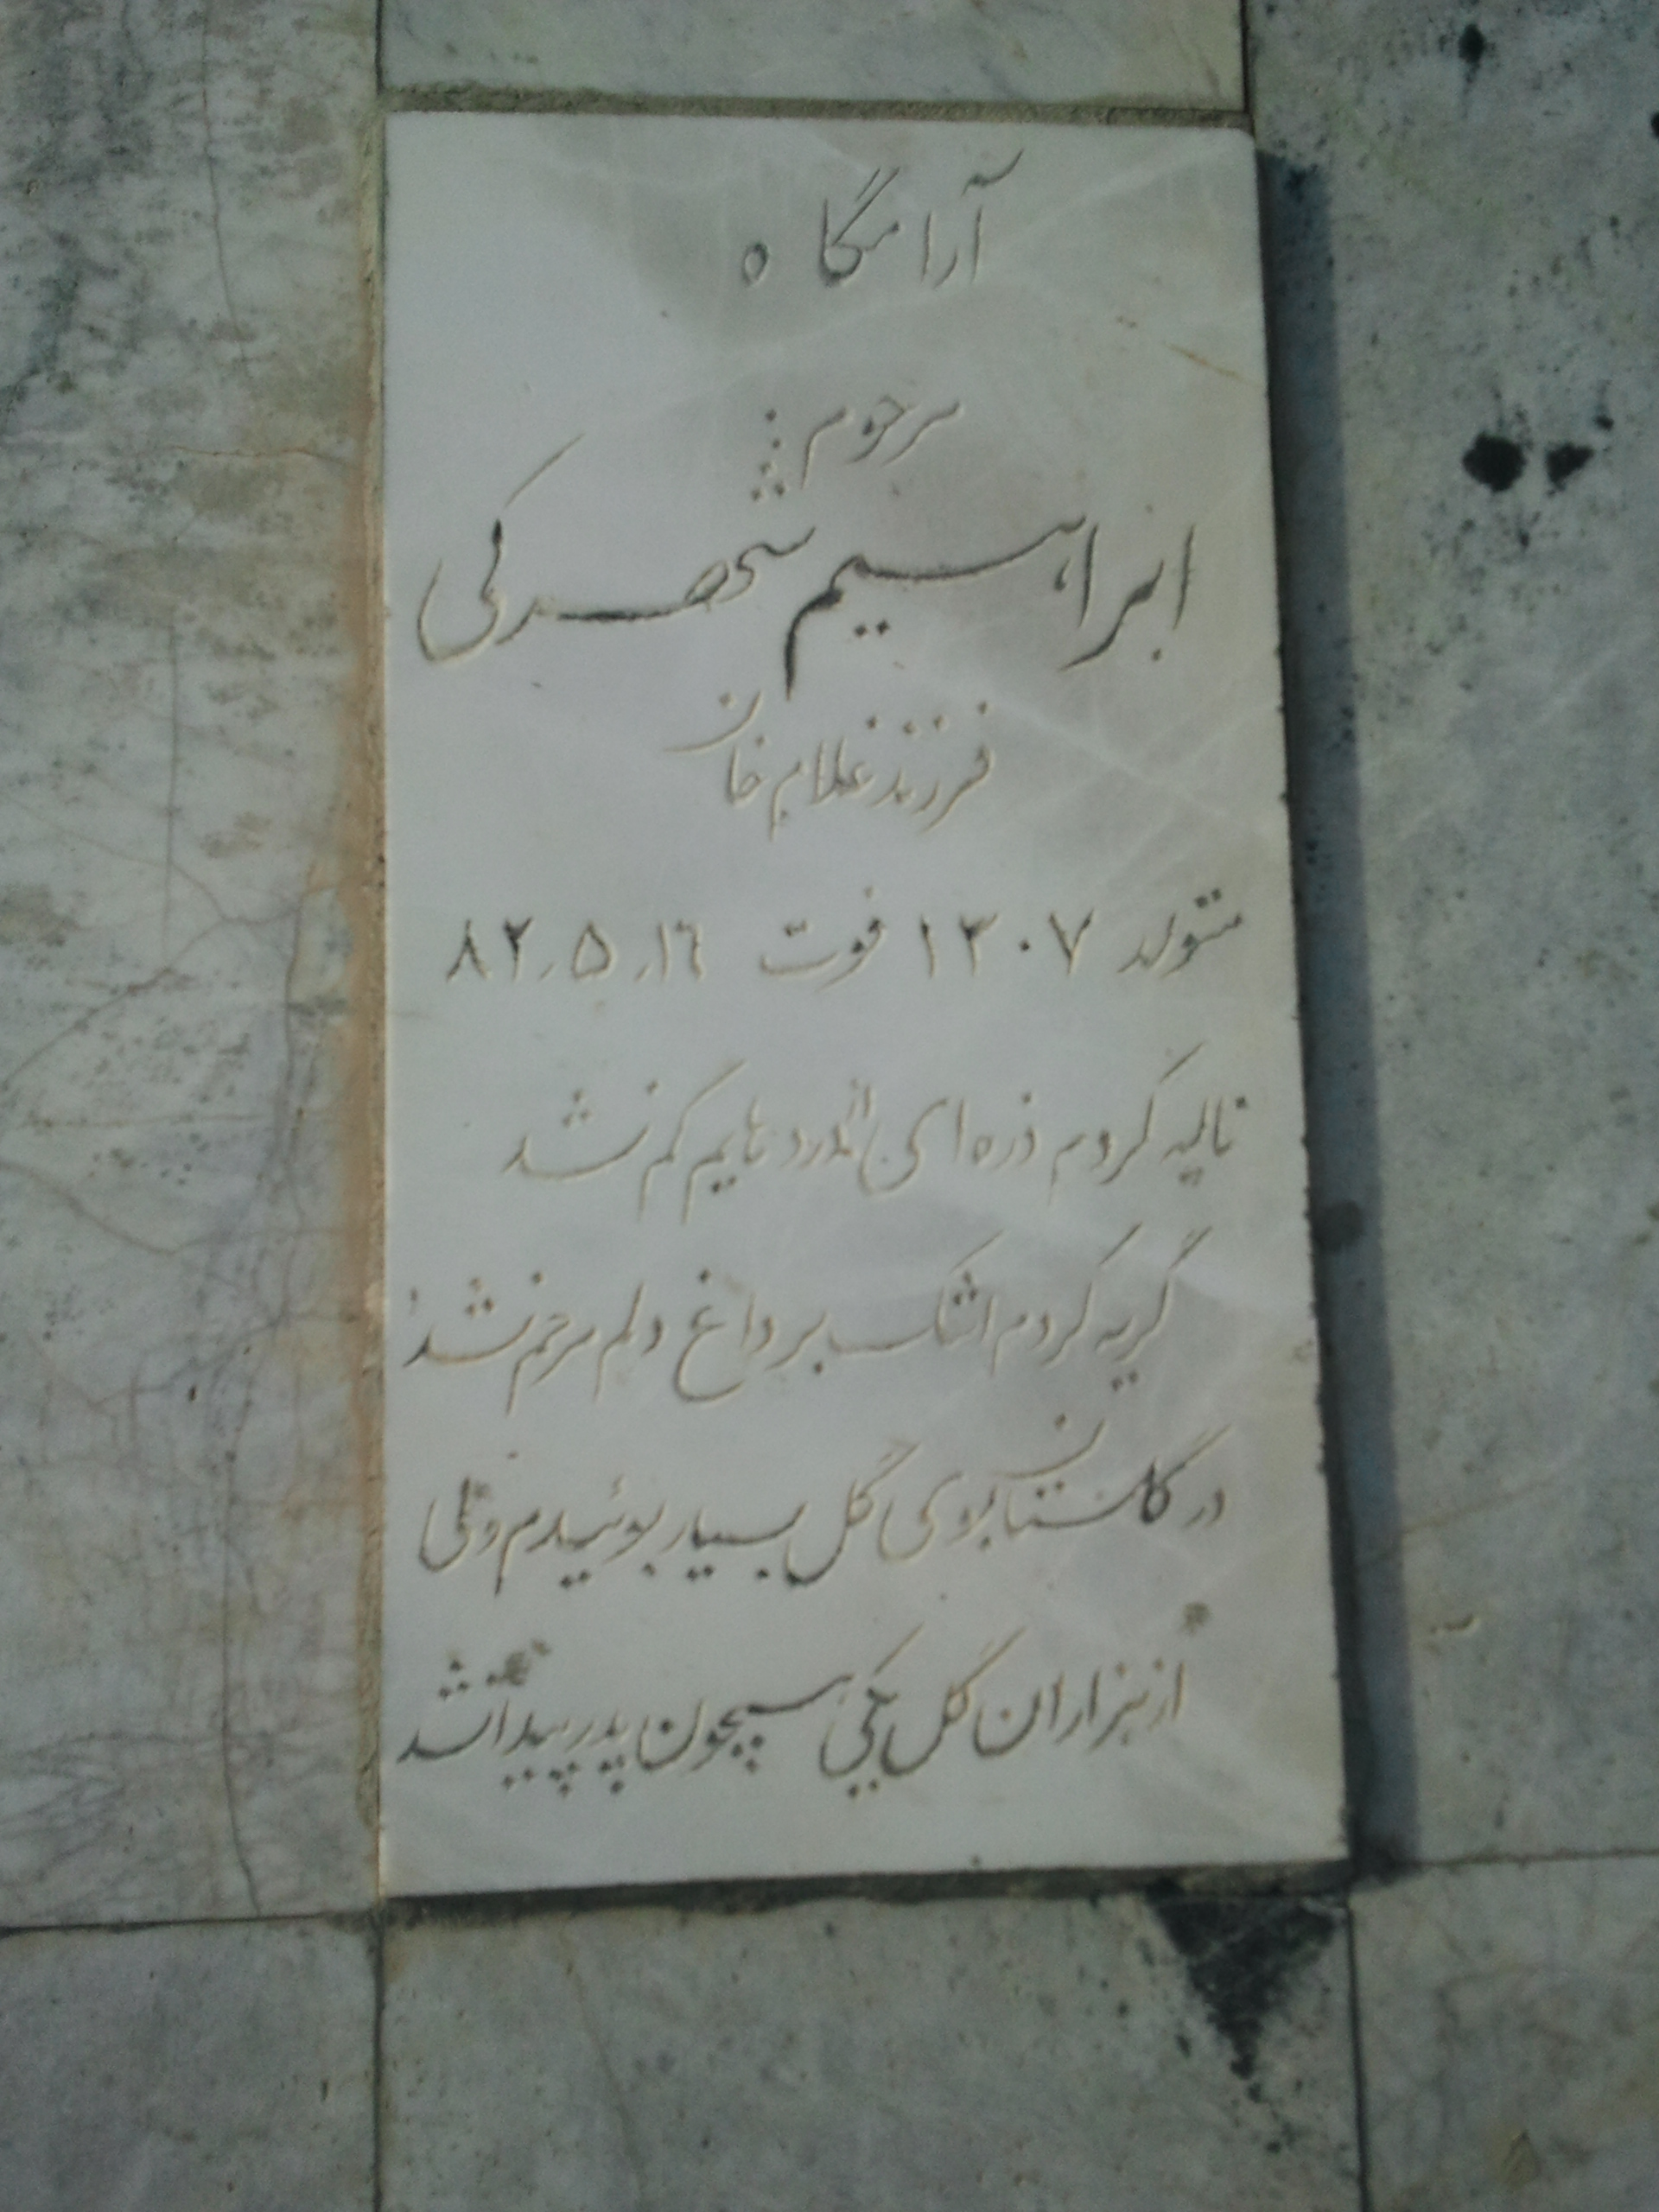 آرامگاه
مرحوم
ابراهیم
فرزند غلام خان
متولد ۱۳۰۷ فوت ۱٦٫۵٫۸۲
ناله کردم ذره ای از دردهایم کم نشد
گریه کردم اشک بر داغ دلم مرحم نشد
در گلستان بوی گل بسیار بوئیدم ولی
از هزاران گل یکی همچون پدر پیدا نشد